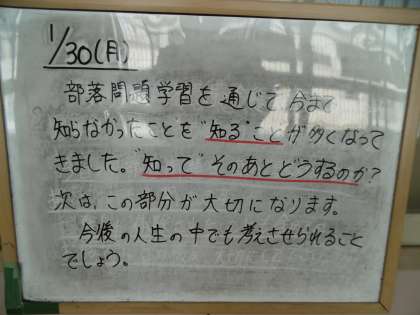 1/30(月)
部落問題学習を通じて、今まで
知らなかったことを"知る"ことが多くなって
きました。"知って"そのあとどうするのか?
次は、この部分が大切になります。
今後の人生の中でも考えさせられること
でしょう。